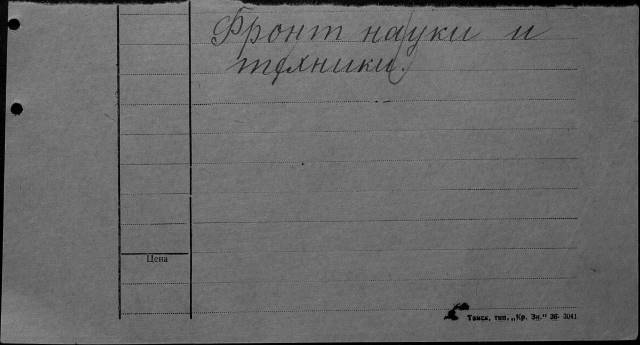 Фронт науки и
техники.
Цена
Томск, тип. „Кр. Зн.“ 36- 3041